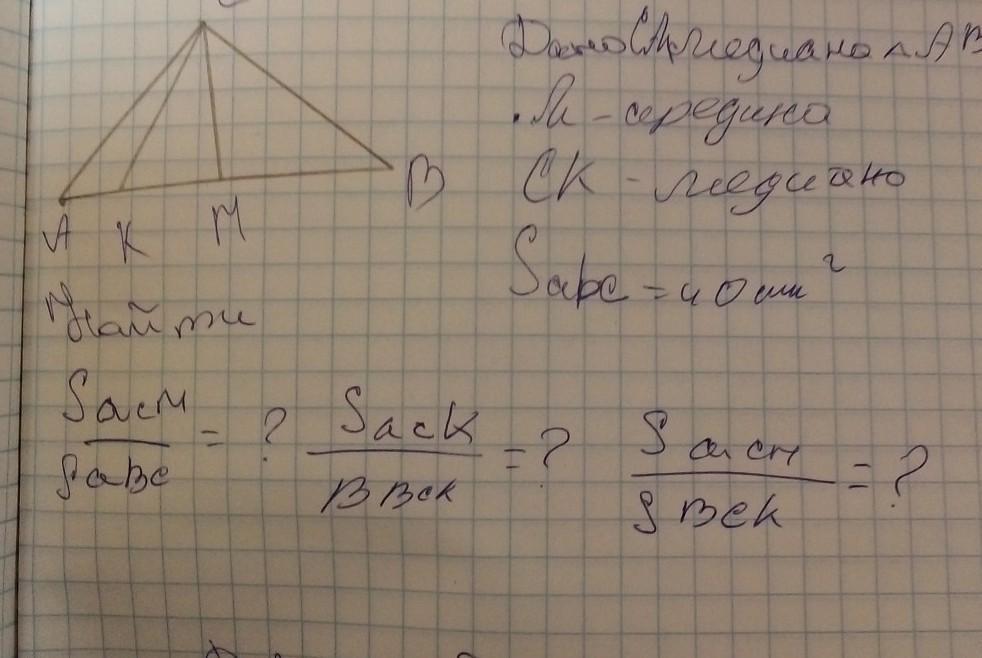 Дано CM медиана △ AB
. M - середина
CK - медиана
B
A K M
Sabc = 40 см²
Найти
SacM / SaBC = ? SacK / BBCK = ? SacM / SBCK = ?